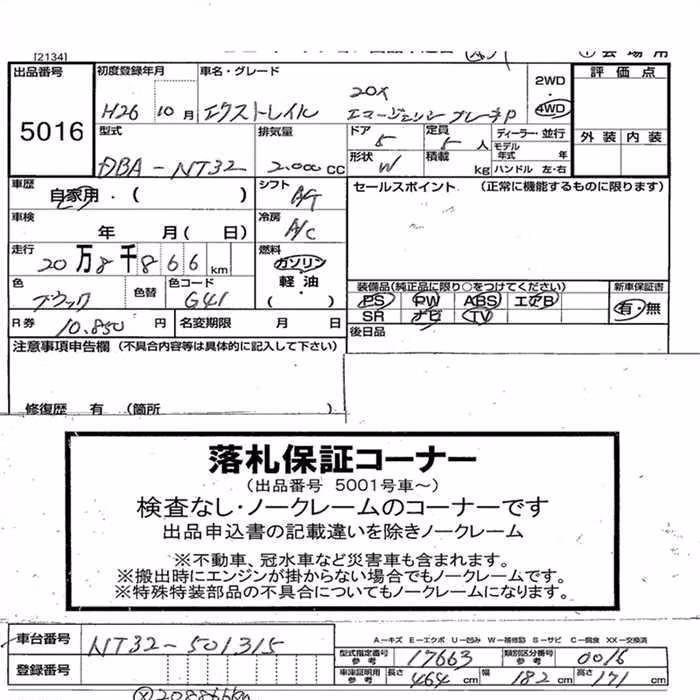 [2134]
① 会場用
出品番号 初度登録年月 車名・グレード 2WD 評価点
5016 H26 10月 エクストレイル 20X エマージェンシーブレーキP 4WD 外装 内装
型式 排気量 ドア 定員 ディーラー・並行
DBA-NT32 2.000CC 5 5人 モデル年式 年
形状 積載
W kg ハンドル 左・右
車歴 自家用・( ) シフト A/T セールスポイント (正常に機能するものに限ります)
車検 年 月(日) 冷房 A/C
走行 20万8千866km 燃料 ガソリン 軽油 ( )
色 ブラック 色替 色コード G41
装備品(純正品に限り○をつけてください) 新車保証書
PS PW ABS エアB 有・無
SR ナビ TV
R券 10.850円 名変期限 月 日 後日品
注意事項申告欄 (不具合内容等は具体的に記入して下さい)
修復歴 有 (箇所 )
落札保証コーナー
(出品番号 5001号車~)
検査なし・ノークレームのコーナーです
出品申込書の記載違いを除きノークレーム
※不動車、冠水車など災害車も含まれます。
※搬出時にエンジンが掛からない場合でもノークレームです。
※特殊特装部品の不具合についてもノークレームになります。
車台番号 NT32-501315
A-キズ E-エクボ U-凹み W-補修跡 S-サビ C-腐食 XX-交換済
型式指定番号 参考 17663 類別区分番号 参考 0016
登録番号
車庫証明用 参考 長さ 464cm 幅 182cm 高さ 171cm
Ⓧ208866km